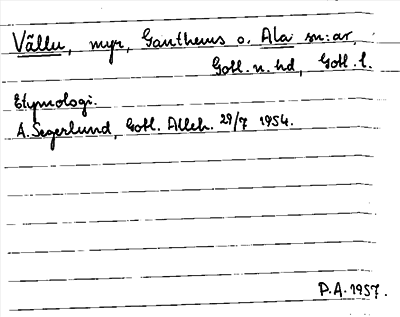 Vällu, myr, Ganthems o. Ala sn:ar,
Gotl. n. hd, Gotl. l.
Etymologi.
A. Segerlund, Gotl. Alleh. 29/7 1954.
P.A. 1957.